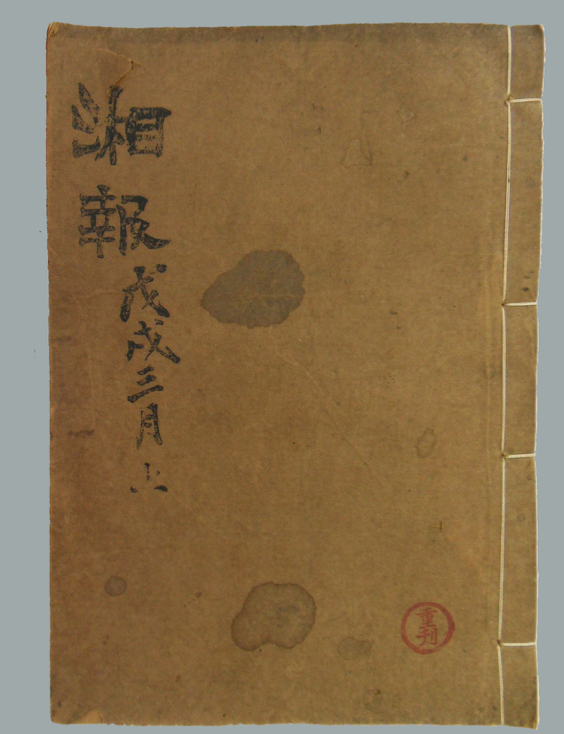 湘報戊戌三月上
重刊